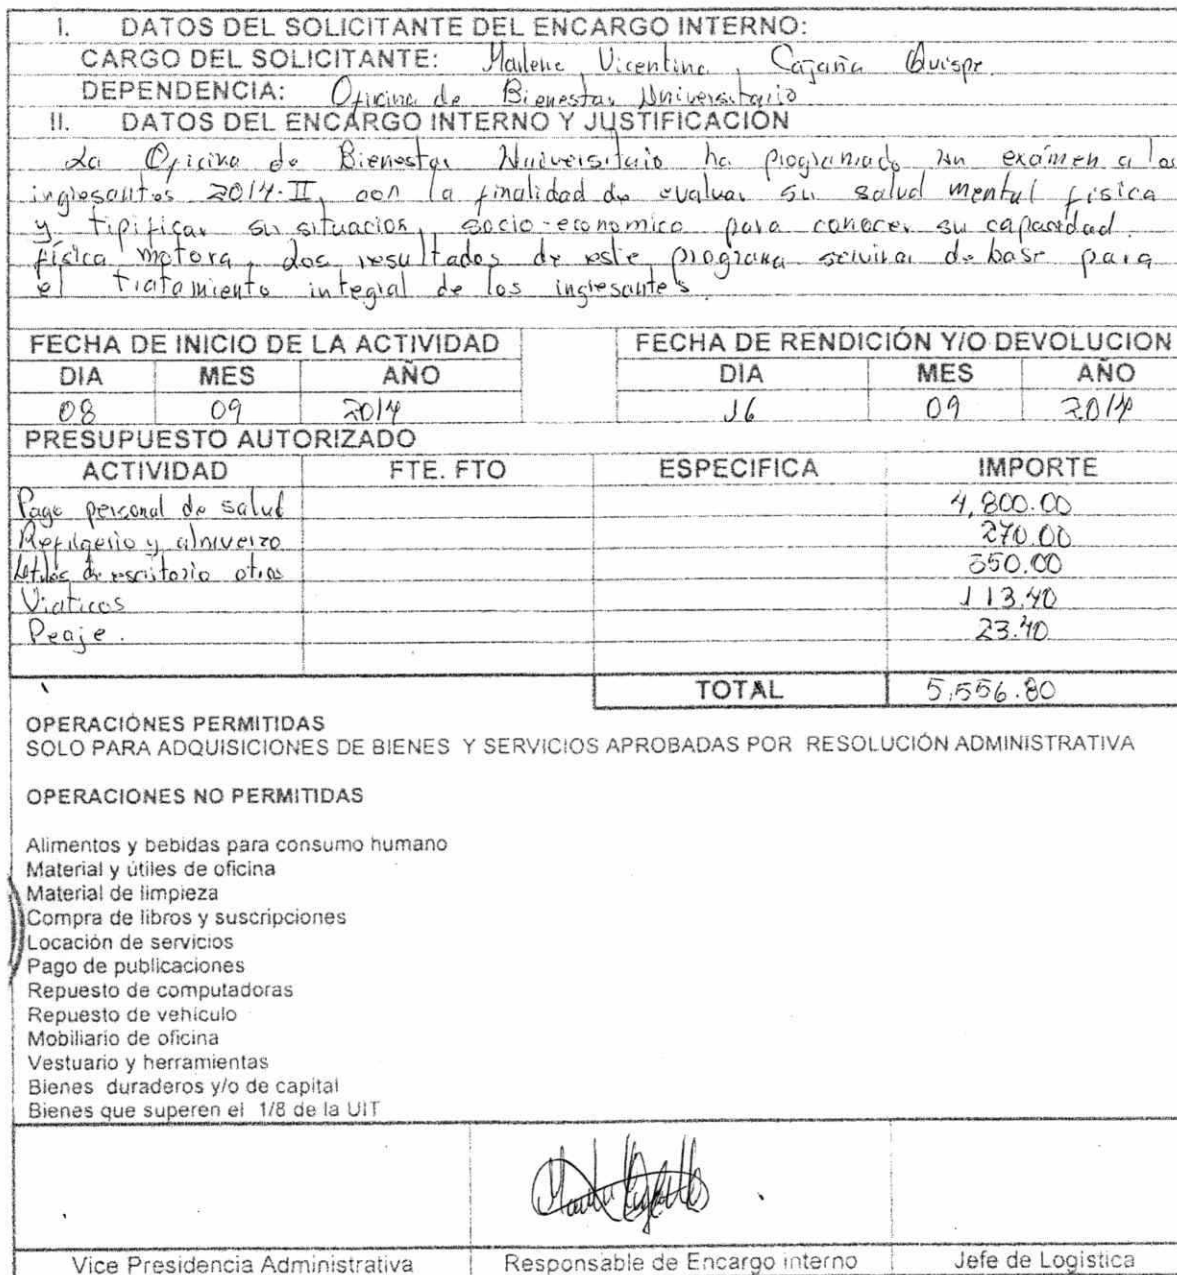 I. DATOS DEL SOLICITANTE DEL ENCARGO INTERNO:
CARGO DEL SOLICITANTE: Marlene Vicentina, Cajaña Quispe.
DEPENDENCIA: Oficina de Bienestar Universitario
II. DATOS DEL ENCARGO INTERNO Y JUSTIFICACIÓN
La Oficina de Bienestar Universitario ha programado un exámen a los
ingresantes 2014-II, con la finalidad de evaluar su salud mental física
y tipificar su situación, socio-economico para conocer su capacidad
física motora, los resultados de este programa servirar de base para
el tratamiento integral de los ingresantes.
FECHA DE INICIO DE LA ACTIVIDAD FECHA DE RENDICIÓN Y/O DEVOLUCION
DIA MES AÑO DIA MES AÑO
08 09 2014 16 09 2014
PRESUPUESTO AUTORIZADO
ACTIVIDAD FTE. FTO ESPECIFICA IMPORTE
Pago personal de salud 4,800.00
Refrigerio y almuerzo 270.00
Utiles de escritorio otros 350.00
Viaticos 113.40
Peaje. 23.40
TOTAL 5,556.80
OPERACIÓNES PERMITIDAS
SOLO PARA ADQUISICIONES DE BIENES Y SERVICIOS APROBADAS POR RESOLUCIÓN ADMINISTRATIVA
OPERACIONES NO PERMITIDAS
Alimentos y bebidas para consumo humano
Material y útiles de oficina
Material de limpieza
Compra de libros y suscripciones
Locación de servicios
Pago de publicaciones
Repuesto de computadoras
Repuesto de vehículo
Mobiliario de oficina
Vestuario y herramientas
Bienes duraderos y/o de capital
Bienes que superen el 1/8 de la UIT
Vice Presidencia Administrativa Responsable de Encargo interno Jefe de Logistica